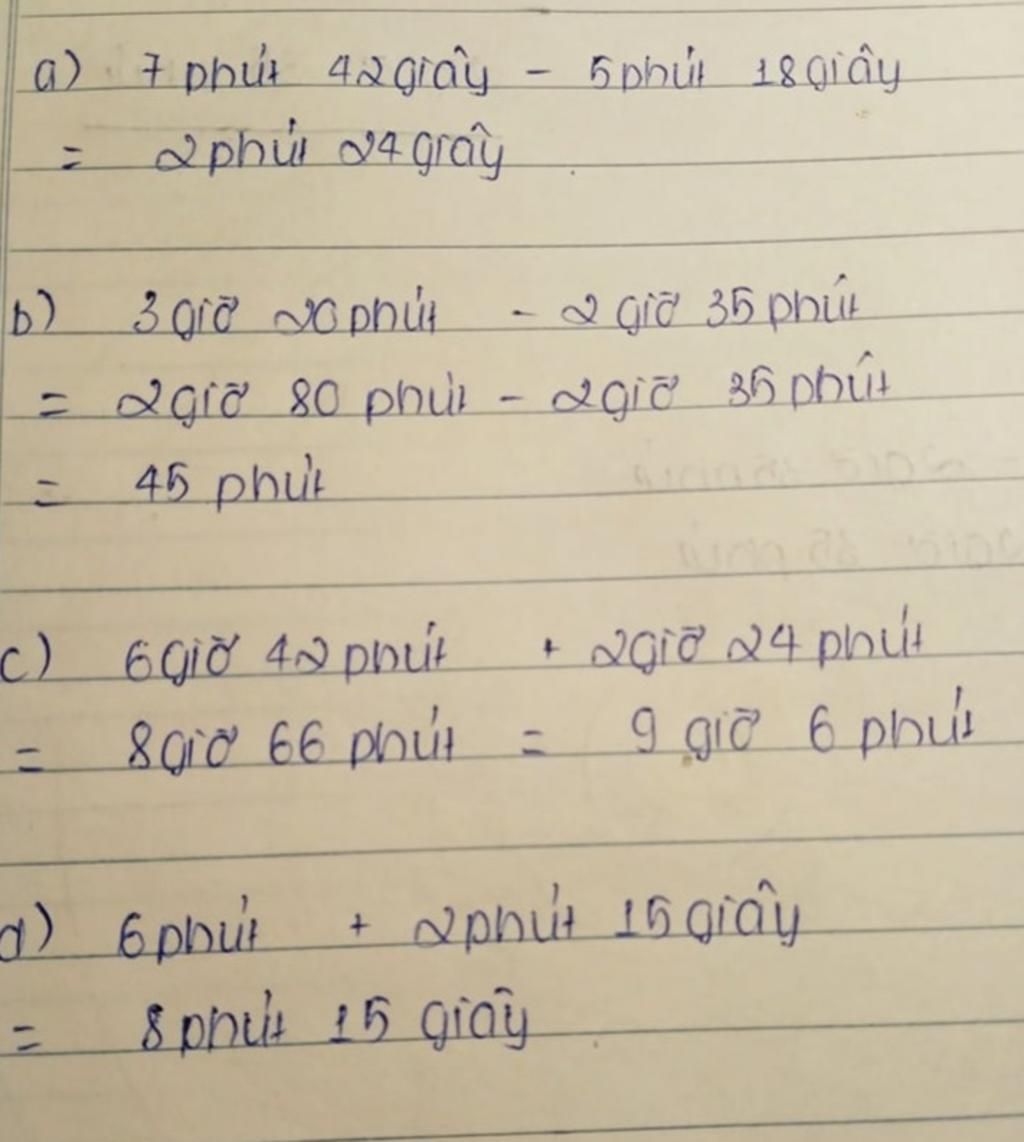 a) 7 phút 42 giây - 5 phút 18 giây
= 2 phút 24 giây
b) 3 giờ 20 phút - 2 giờ 35 phút
= 2 giờ 80 phút - 2 giờ 35 phút
= 45 phút
c) 6 giờ 42 phút + 2 giờ 24 phút
= 8 giờ 66 phút = 9 giờ 6 phút
d) 6 phút + 2 phút 15 giây
= 8 phút 15 giây